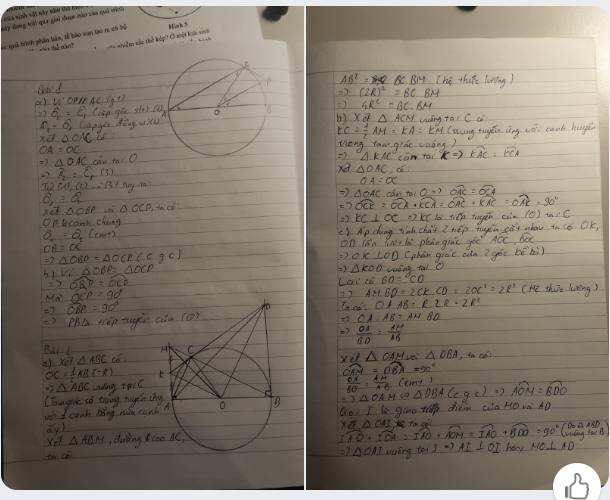 này đang trải qua giai đoạn nào của quá trình
quá trình phân bào, tế bào con tạo ra có bộ
như thế nào?
nhiễm sắc thể kép? Ở một loài sinh
Hình 5
Bài 1
a) Vì OP // AC (gt)
=> Ô₁ = Ĉ₁ (cặp góc slt) (1)
Â₁ = Ô₂ (cặp góc đồng vị) (2)
Xét △OAC có:
OA = OC
=> △OAC cân tại O
=> Â₁ = Ĉ₁ (3)
Từ (1), (2) và (3) suy ra:
Xét △OBP và △OCP, ta có:
OP là cạnh chung
(cmt)
OB = OC
=> △OBP = △OCP (c.g.c)
b) Vì △OBP = △OCP
=> OBP = OCP
Mà OCP = 90°
=> OBP = 90°
=> PB là tiếp tuyến của (O)
Bài
a) Xét △ABC có:
OC = ½ AB (=R)
=> △ABC vuông tại C
(Tam giác có trung tuyến ứng
với 1 cạnh bằng nửa cạnh
ấy)
Xét △ABM, đường cao AC,
ta có
A
O
B
C
P
M
C
D
K
A
O
B
AB² = BC. BM (hệ thức lượng)
=> (2R)² = BC. BM
=> 4R² = BC. BM
b) Xét △ ACM vuông tại C có:
KC = ½ AM = KA = KM (trung tuyến ứng với cạnh huyền
trong tam giác vuông)
=> △ KAC cân tại K => KAC = KCA
Xét △OAC, có:
OA = OC
=> △OAC cân tại O => OAC = OCA
=> OCK = OCA + KCA = OAC + KAC = OAK = 90°
=> KC ⊥ OC => KC là tiếp tuyến của (O) tại C
c) Áp dụng tính chất 2 tiếp tuyến cắt nhau ta có OK,
OD lần lượt là phân giác góc AOC, BOC
=> OK ⊥ OD (phân giác của 2 góc kề bù)
=> △KOD vuông tại O
Lại có BD = CD
=> AM.BD = 2CK.CD = 2OC² = 2R² (Hệ thức lượng)
Ta có: OA.AB = R.2R = 2R²
=> OA.AB = AM.BD
=> OA/BD = AM/AB
Xét △OAM và △DBA, ta có:
OAM = DBA = 90°
OA/BD = AM/AB (cmt)
=> △OAM ∽ △DBA (c.g.c) => AOM = BDO
Gọi I là giao điểm của MO và AD
Xét △OAI, ta có:
IAO + IOA = IAO + AOM = IAO + BDO = 90° (Do △ABD vuông tại B)
=> △OAI vuông tại I => AI ⊥ OI hay MO ⊥ AD